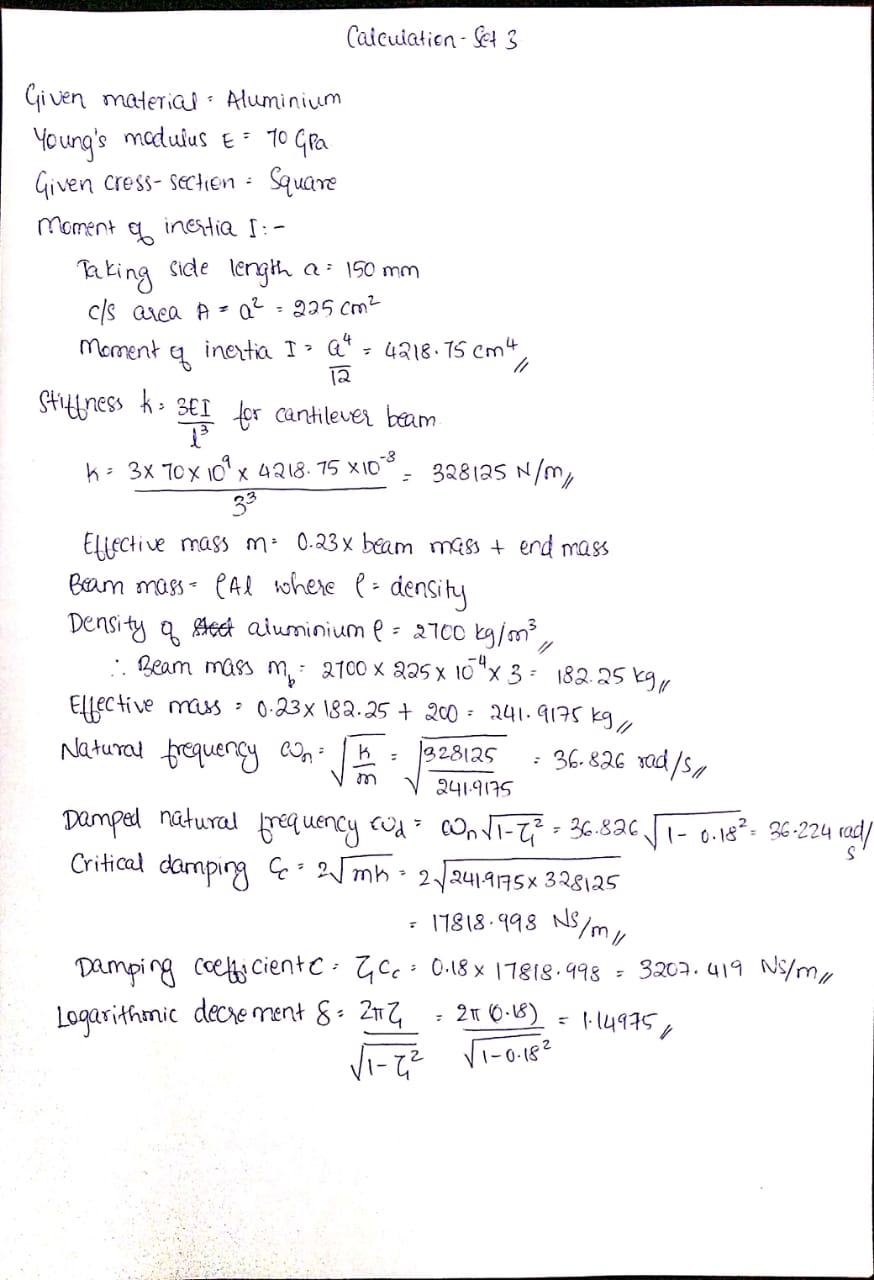 Calculation - Set 3
Given material = Aluminium
Young's modulus E = 70 GPa
Given cross-section = Square
Moment of inertia I :-
Taking side length a = 150 mm
c/s area A = a² = 225 cm²
Moment of inertia I = a⁴/12 = 4218.75 cm⁴
Stiffness k = 3EI/l³ for cantilever beam
k = 3 x 70 x 10⁹ x 4218.75 x 10⁻⁸ / 3³ = 328125 N/m
Effective mass m = 0.23 x beam mass + end mass
Beam mass = ρAl where ρ = density
Density of aluminium ρ = 2700 kg/m³
∴ Beam mass m_b = 2700 x 225 x 10⁻⁴ x 3 = 182.25 kg
Effective mass = 0.23 x 182.25 + 200 = 241.9175 kg
Natural frequency ωn = √(k/m) = √(328125/241.9175) = 36.826 rad/s
Damped natural frequency ωd = ωn √(1-ζ²) = 36.826 √(1-0.18²) = 36.224 rad/s
Critical damping Cc = 2√(mk) = 2√(241.9175 x 328125)
= 17818.998 NS/m
Damping coefficient C = ζCc = 0.18 x 17818.998 = 3207.419 NS/m
Logarithmic decrement δ = 2πζ/√(1-ζ²) = 2π(0.18)/√(1-0.18²) = 1.14975